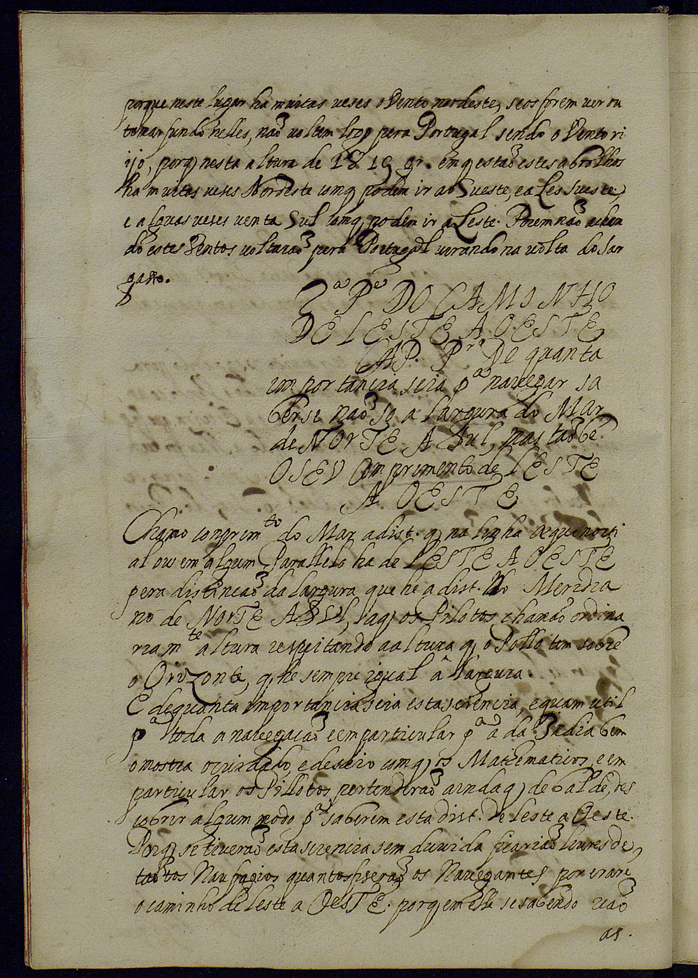 porque neste lugar ha muitas veses o Vento nordeste, se os forem ver ou
tomar fundo nelles, naõ voltem logo pera Portugal sendo o Vento ri
jo, porq̃ nesta altura de 18 19 gr. em q̃ estaõ estes abrolhos
ha muitas veses Nordeste com q̃ podem ir ao Sueste, e a Les Sueste,
e algũas veses venta Sul com q̃ podem ir a Leste. Porem naõ achan
do estes Ventos voltaraõ pera Portugal virando na volta do Sar
gasso.
2ª Pᵉ DO CAMINHO
DE LESTE A OESTE
CAP. Pʳº De quanta
importancia seia pª navegar sa
berse naõ so a largura do Mar
de NORTE A Sul, mas tãobẽ
O SEV Comprimento de LESTE
A OESTE
Chamo comprimᵗº do Mar a dist. q̃ na linha æquinocti
al ou em algum Parallelo ha de LESTE A OESTE
pera distincaõ da largura que he a dist. do Meredia
no de NORTE A SUL, a q̃ os Pilotos chamaõ ordina
riamᵗᵉ altura respeitando a altura q̃ o Pollo tem sobre
o Orizonte, q̃ he sempre igual â largura.
E de quanta importancia seia esta sciencia, e quam util
pª toda a navegacaõ e em particular pª a da India bem
o mostra o cuidado, e deseio com q̃ os Mathematicos, e em
particular os Pillotos pertenderaõ ainda q̃ de balde, des
cobrir algum modo pª saberem esta dist. de leste a Oeste.
Porq̃ se tiveraõ esta sciencia sem duvida ficariaõ livres de
tantos Naufragios quantos fiseraõ os Navegantes por errare
o caminho de leste a OESTE. porq̃ em elle se sabendo naõ
as.